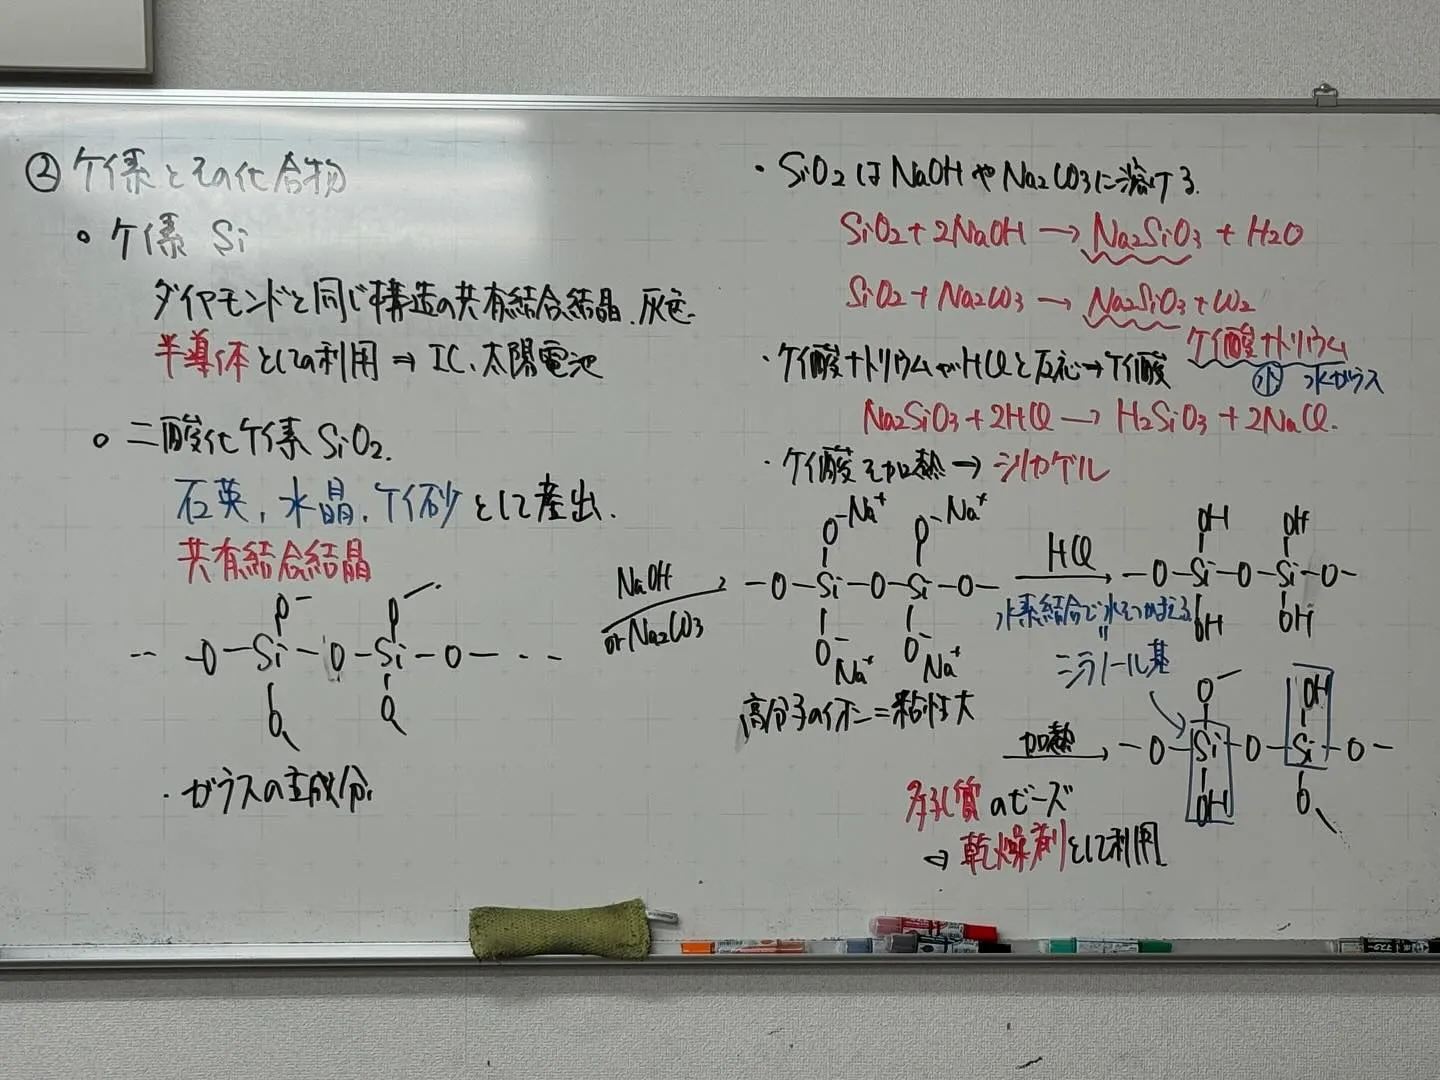 ② ケイ素とその化合物
○ ケイ素 Si
ダイヤモンドと同じ構造の共有結合結晶．灰色．
半導体としての利用 ⇒ IC、太陽電池
○ 二酸化ケイ素 SiO2.
石英，水晶，ケイ砂として産出．
共有結合結晶
O O
-- -O-Si-O-Si-O- --
O O
・ガラスの主成分
・SiO2はNaOHやNa2CO3に溶ける．
SiO2+2NaOH → Na2SiO3 + H2O
SiO2+Na2CO3 → Na2SiO3+CO2
ケイ酸ナトリウム
水 水ガラス
・ケイ酸ナトリウムがHClと反応→ケイ酸
Na2SiO3+2HCl → H2SiO3+2NaCl.
・ケイ酸を加熱→シリカゲル
NaOH
or Na2CO3
O-Na+ O-Na+
-O-Si-O-Si-O-
O- O-
Na+ Na+
高分子のイオン=粘性大
HCl
水素結合で水をつかまえる
=
シラノール基
OH OH
-O-Si-O-Si-O-
OH OH
加熱
O OH
-O-Si-O-Si-O-
OH O
多孔質のビーズ
⇒乾燥剤として利用